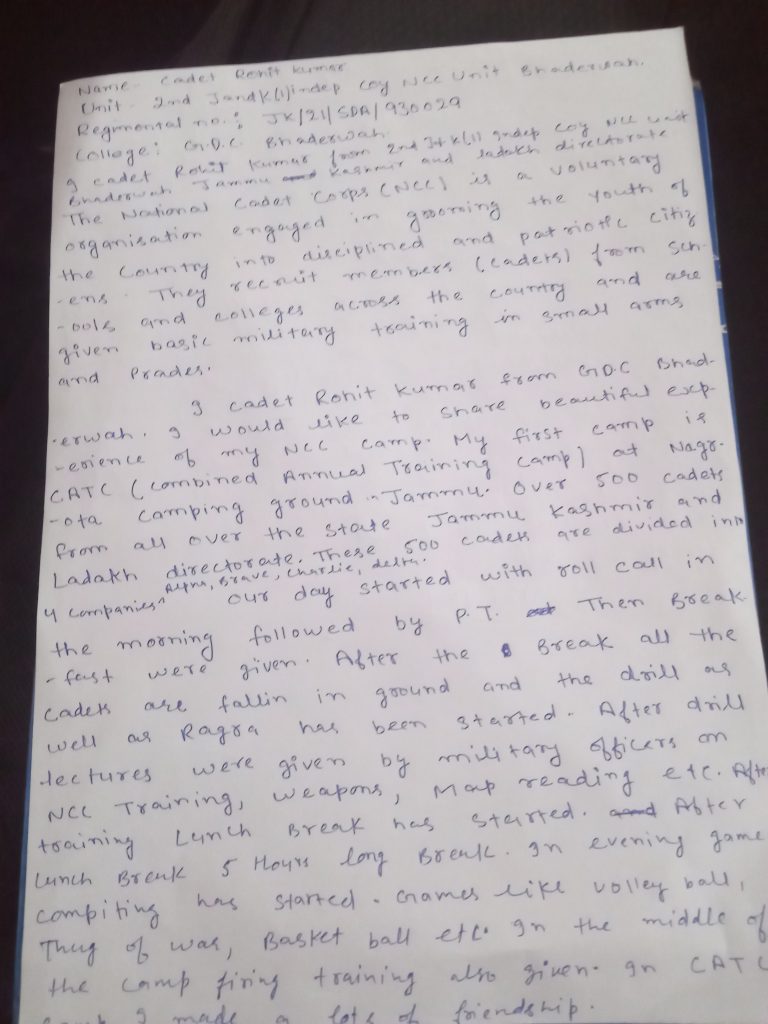 Name- Cadet Rohit kumar
Unit- 2nd JandK(1)indep coy NCC Unit Bhaderwah.
Regimental no.: JK/21/SDA/930029
College: G.D.C. Bhaderwah.
I cadet Rohit Kumar from 2nd J+K(1) indep coy NCC unit
Bhaderwah Jammu and Kashmir and ladakh directorate
The National Cadet Corps (NCC) is a voluntary
organisation engaged in grooming the youth of
the Country into disciplined and patriotic citiz
-ens. They recruit members (cadets) from sch-
-ools and colleges across the country and are
given basic military training in small arms
and Prades.
I cadet Rohit Kumar from G.D.C Bhad-
-erwah. I would like to share beautiful exp-
-erience of my NCC camp. My first camp is
CATC (combined Annual Training Camp) at Nagr-
-ota camping ground in Jammu. Over 500 cadets
from all over the state Jammu Kashmir and
Ladakh directorate. These 500 cadets are divided into
4 companies Alpha, Brave, Charlie, delta. Our day started with roll call in
the morning followed by P.T. Then Break-
-fast were given. After the Break all the
cadets are fallin in ground and the drill as
well as Ragra has been started. After drill
lectures were given by military officers on
NCC Training, weapons, Map reading etc. After
training Lunch Break has started. After
Lunch Break 5 Hours long Break. In evening game
compiting has started. Games like volley ball,
Thug of war, Basket ball etc. In the middle of
the camp firing training also given. In CATC
camp I made a lots of friendship.